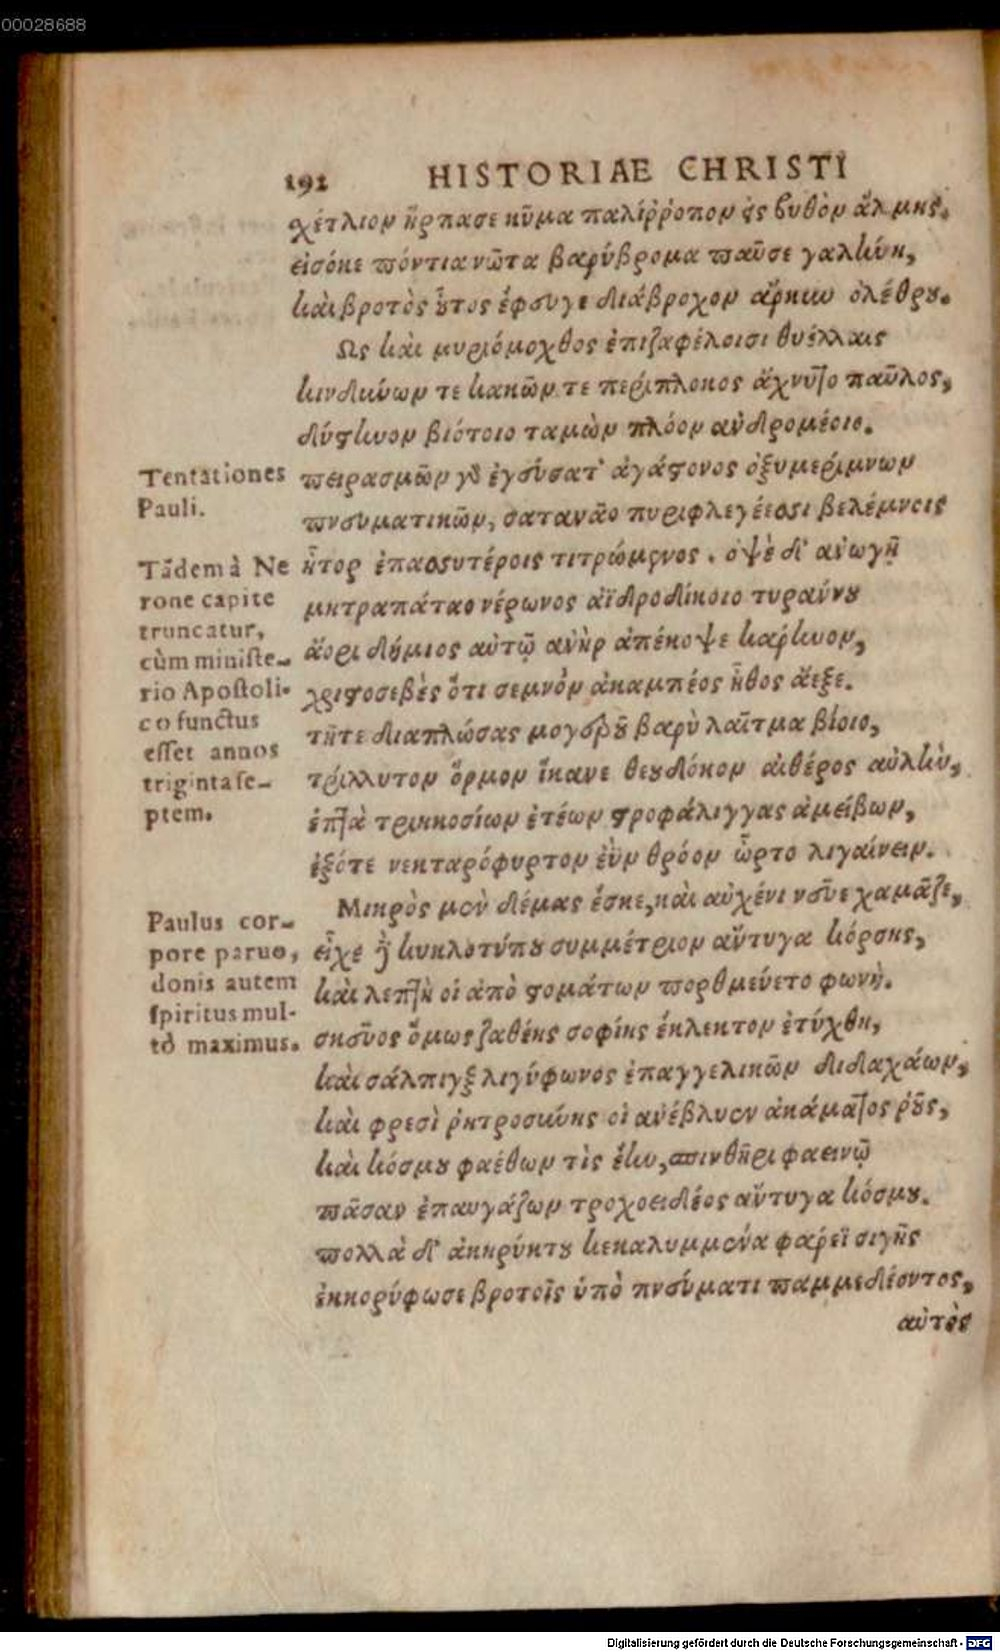 00028688
192 HISTORIAE CHRISTI
χέτλιον ἥρπασε κῦμα παλίῤῥοπον ἐς βυθὸν ἅλμης.
εἰσόκε πόντια νῶτα βαρύβρομα παῦσε γαλήνη,
καὶ βροτὸς οὗτος ἔφευγε διάβροχον ἄρκυν ὀλέθρου.
Ως καὶ μυριόμοχθος ἐπιζαφέλοισι θυέλλαις
κινδύνων τε κακῶν τε περίπλοκος ἄχνυτο παῦλος,
δύστηνον βιότοιο ταμὼν πλόον ἀνδρομέοιο.
Tentationes
Pauli.
πειρασμῶν γὸ ἐγεύσατ' ἀγάστονος ὀξυμερίμνων
πνευματικῶν, σατανᾶο πυριφλεγέεσσι βελέμνοις
Tādem à Ne
rone capite
truncatur,
cùm ministe-
rio Apostoli-
co functus
esset annos
triginta se-
ptem.
ἦτορ ἐπασσυτέροις τιτρώμενος. ὀψὲ δ' ἀνωγῇ
μητραπάταο νέρωνος ἀϊδροδίκοιο τυράννου
ἄορι δήμιος αὐτῷ ἀνὴρ ἀπέκοψε κάρηνον,
χριστοσεβὲς ὅτι σεμνὸν ἀκαμπέος ἦθος ἄεξε.
τῆτε διαπλώσας μογεροῦ βαρὺ λαῖτμα βίοιο,
τρίλλυτον ὅρμον ἵκανε θεουδόκον αἰθέρος αὐλὴν,
ἑπτὰ τριηκοσίων ἐτέων στροφάλιγγας ἀμείβων,
ἐξότε νεκταρόφυρτον ἐῢν θρόον ὦρτο λιγαίνειν.
Paulus cor-
pore paruo,
donis autem
spiritus mul-
tò maximus.
Μικρὸς μὲν δέμας ἔσκε, καὶ αὐχένι νεῦε χαμᾶζε,
εἶχε δὲ κυκλοτύπου συμμέτριον ἄντυγα κόρσης,
καὶ λεπτὴ οἱ ἀπὸ στομάτων πορθμεύετο φωνὴ.
σκεῦος ὅμως ζαθέης σοφίης ἔκλεκτον ἐτύχθη,
καὶ σάλπιγξ λιγύφωνος ἐπαγγελικῶν διδαχάων,
καὶ φρεσὶ ῥητροσύνης οἱ ἀνέβλυεν ἀκάματος ῥοῦς,
καὶ κόσμου φαέθων τὶς ἔην, σπινθῆρι φαεινῷ
πᾶσαν ἐπαυγάζων τροχοειδέος ἄντυγα κόσμου.
πολλὰ δ' ἀκηρύκτου κεκαλυμμένα φάρεϊ σιγῆς
ἐκκορύφωσε βροτοῖς ὑπὸ πνεύματι παμμεδέοντος,
αὐτὸς
Digitalisierung gefördert durch die Deutsche Forschungsgemeinschaft - DFG